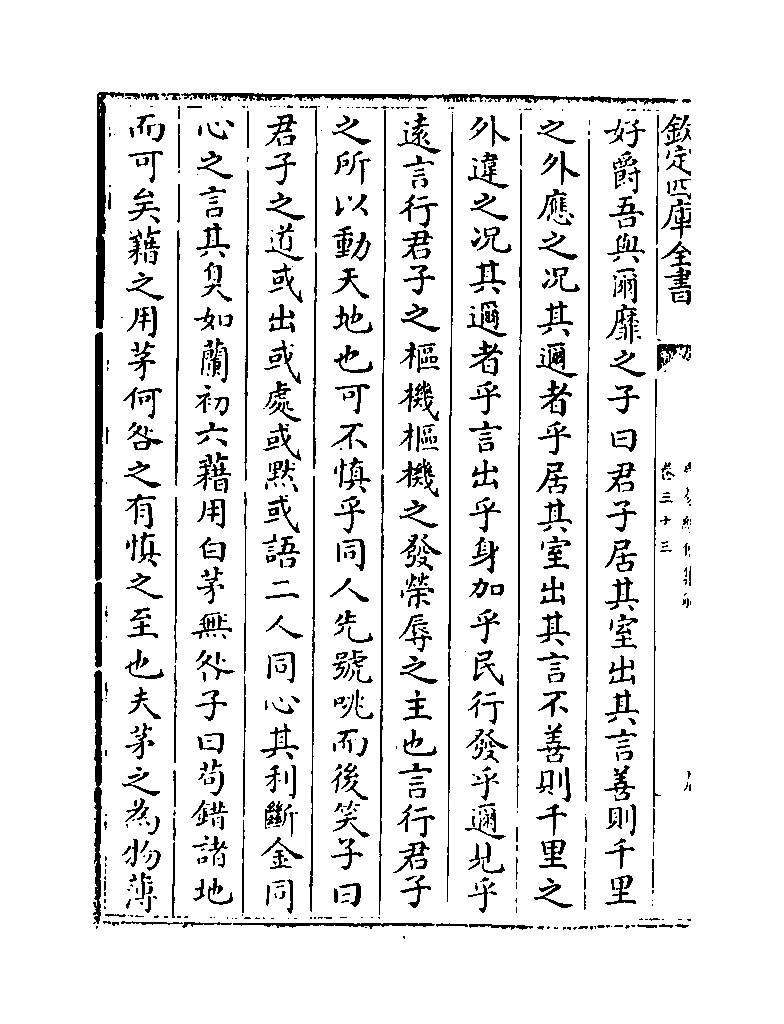 欽定四庫全書
卷三十三
好爵吾與爾靡之子曰君子居其室出其言善則千里
之外應之况其邇者乎居其室出其言不善則千里之
外違之况其邇者乎言出乎身加乎民行發乎邇見乎
逺言行君子之樞機樞機之發榮辱之主也言行君子
之所以動天地也可不慎乎同人先號咷而後笑子曰
君子之道或出或處或黙或語二人同心其利斷金同
心之言其臭如蘭初六藉用白茅無咎子曰苟錯諸地
而可矣藉之用茅何咎之有慎之至也夫茅之為物薄